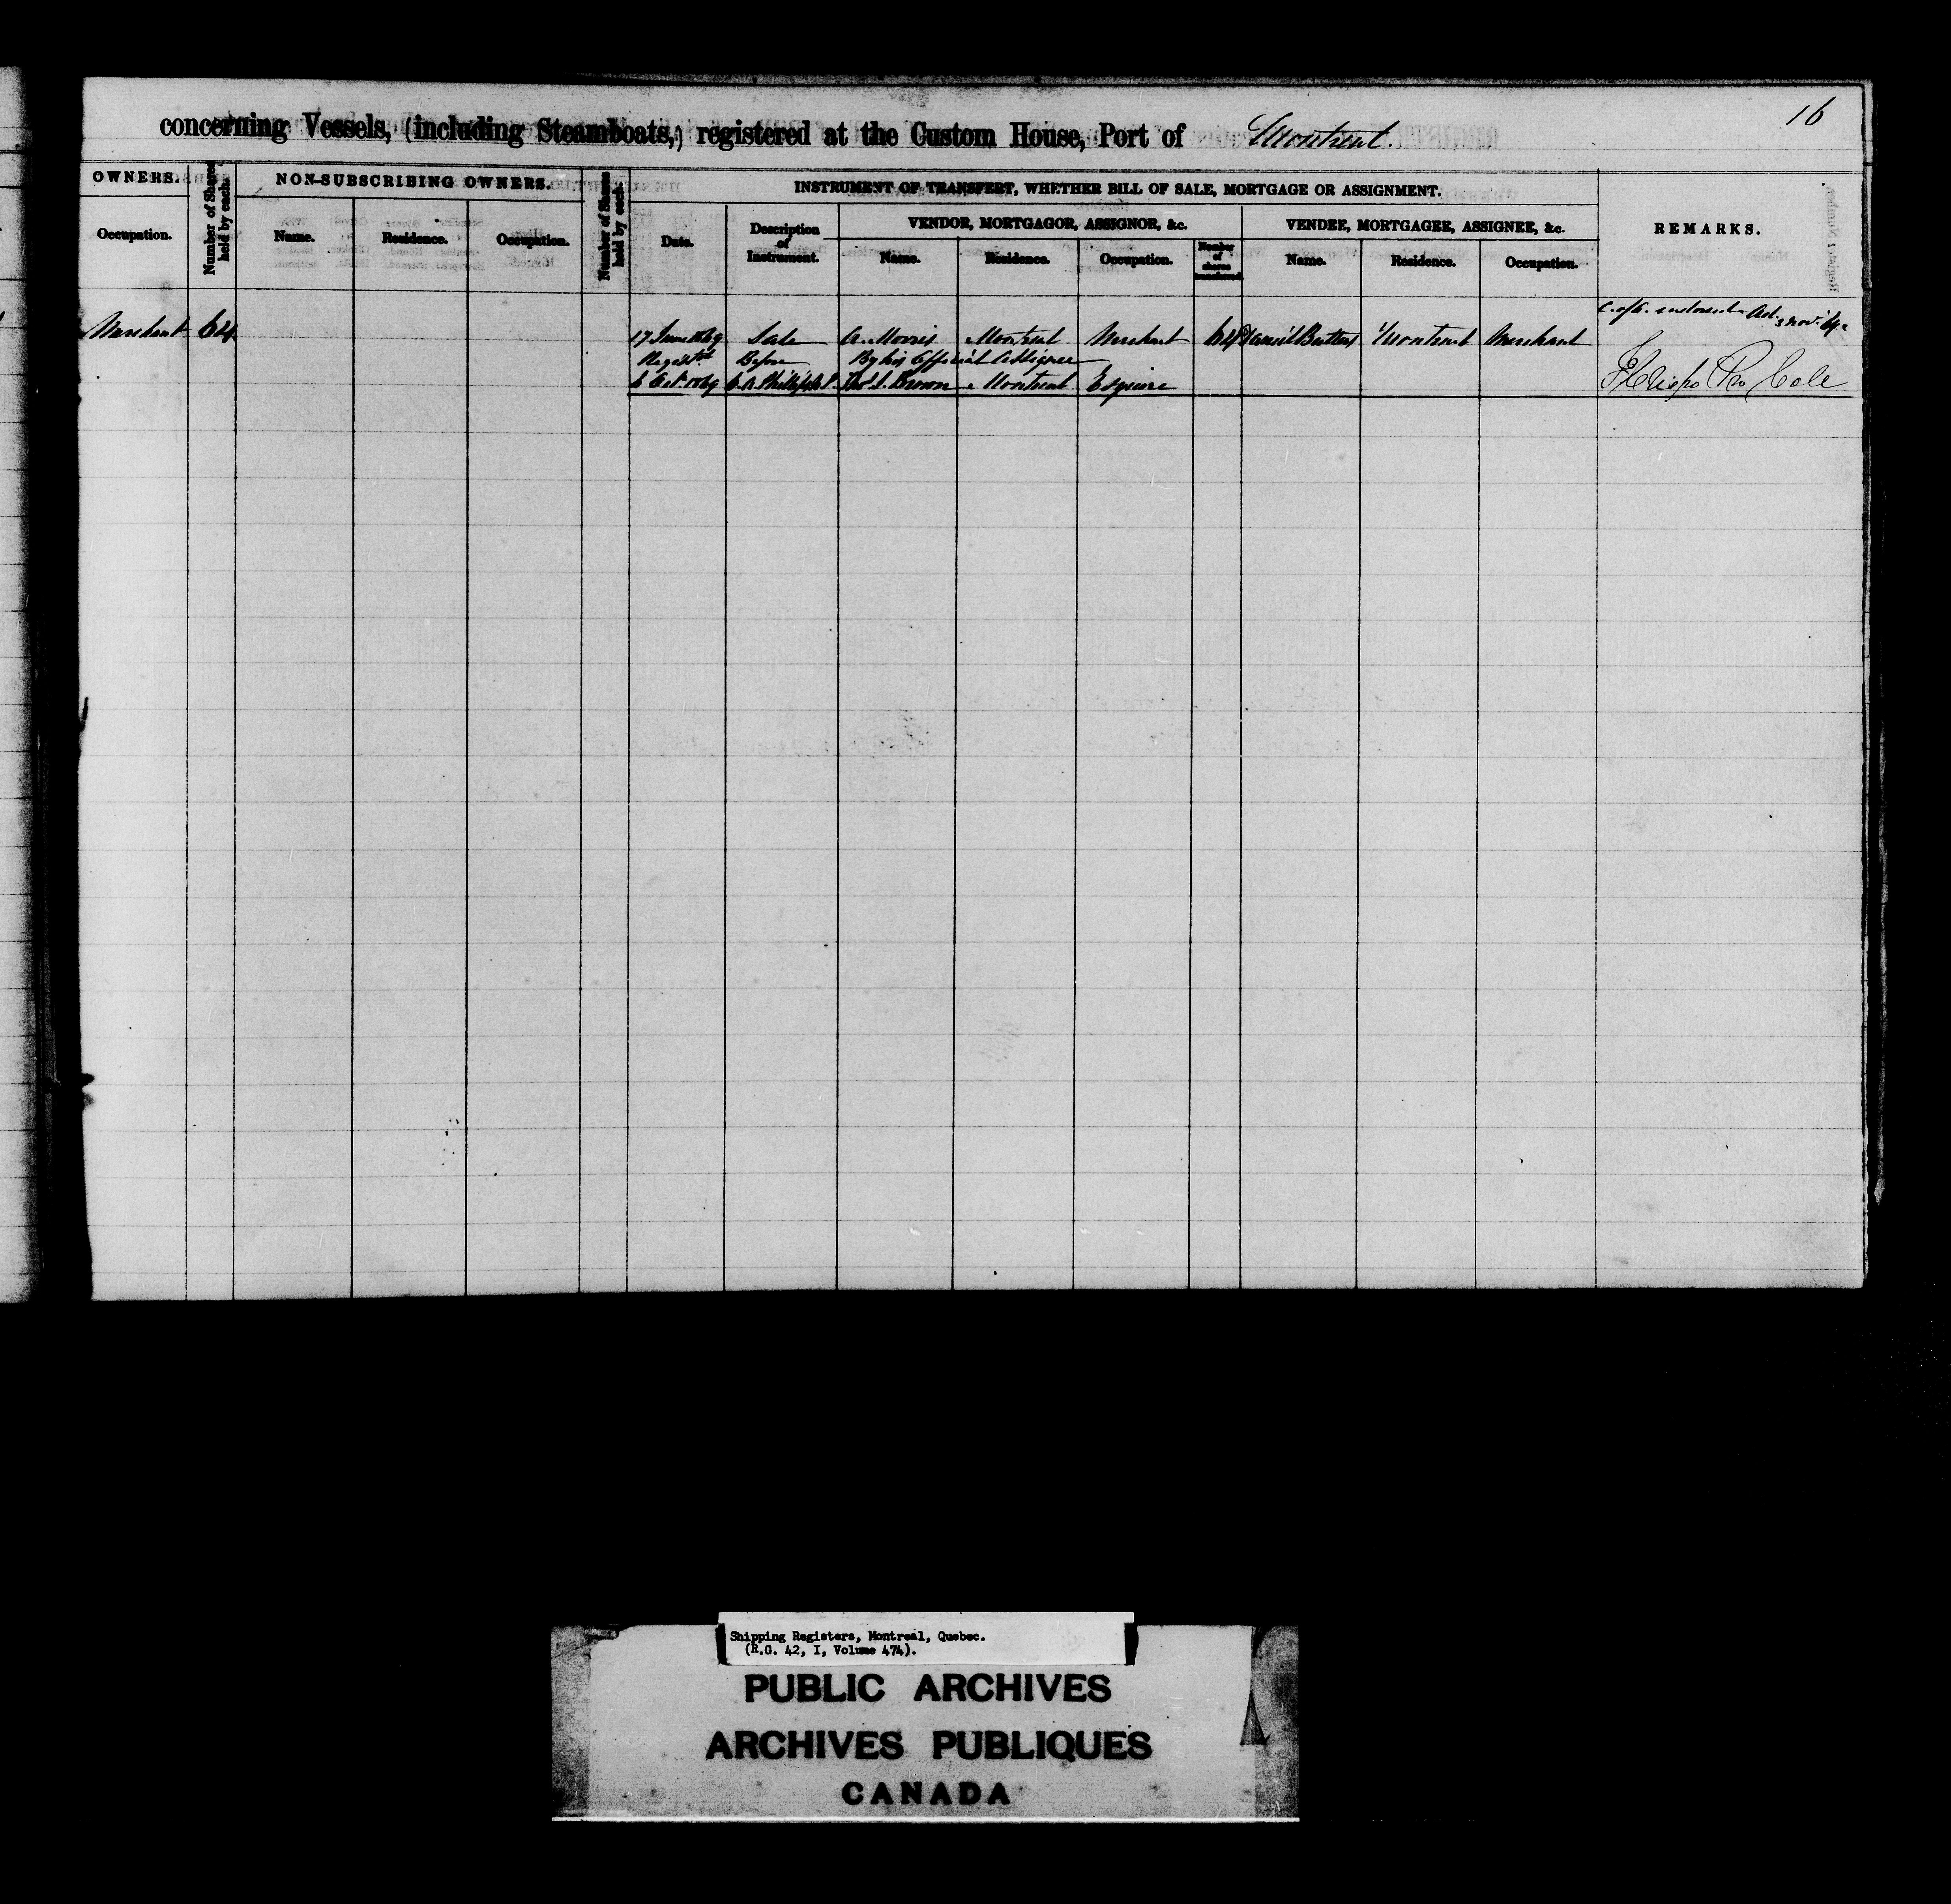 16
concerning Vessels, (including Steamboats,) registered at the Custom House, Port of Montreal.
OWNERS.
Number of Shares held by each.
NON-SUBSCRIBING OWNERS.
Number of Shares held by each.
INSTRUMENT OF TRANSFERT, WHETHER BILL OF SALE, MORTGAGE OR ASSIGNMENT.
REMARKS.
Occupation.
Name.
Residence.
Occupation.
Date.
Description of Instrument.
VENDOR, MORTGAGOR, ASSIGNOR, &c.
VENDEE, MORTGAGEE, ASSIGNEE, &c.
Name.
Residence.
Occupation.
Number of shares transferred
Name.
Residence.
Occupation.
Merchant 64 17 June 1849 Sale A. Morris Montreal Merchant 64 Daniel Butters Montreal Merchant
Before By his Official Assignee
6 Oct. 1849 Brown Montreal Esquire
Shipping Registers, Montreal, Quebec.
(R.G. 42, I, Volume 474).
PUBLIC ARCHIVES
ARCHIVES PUBLIQUES
CANADA